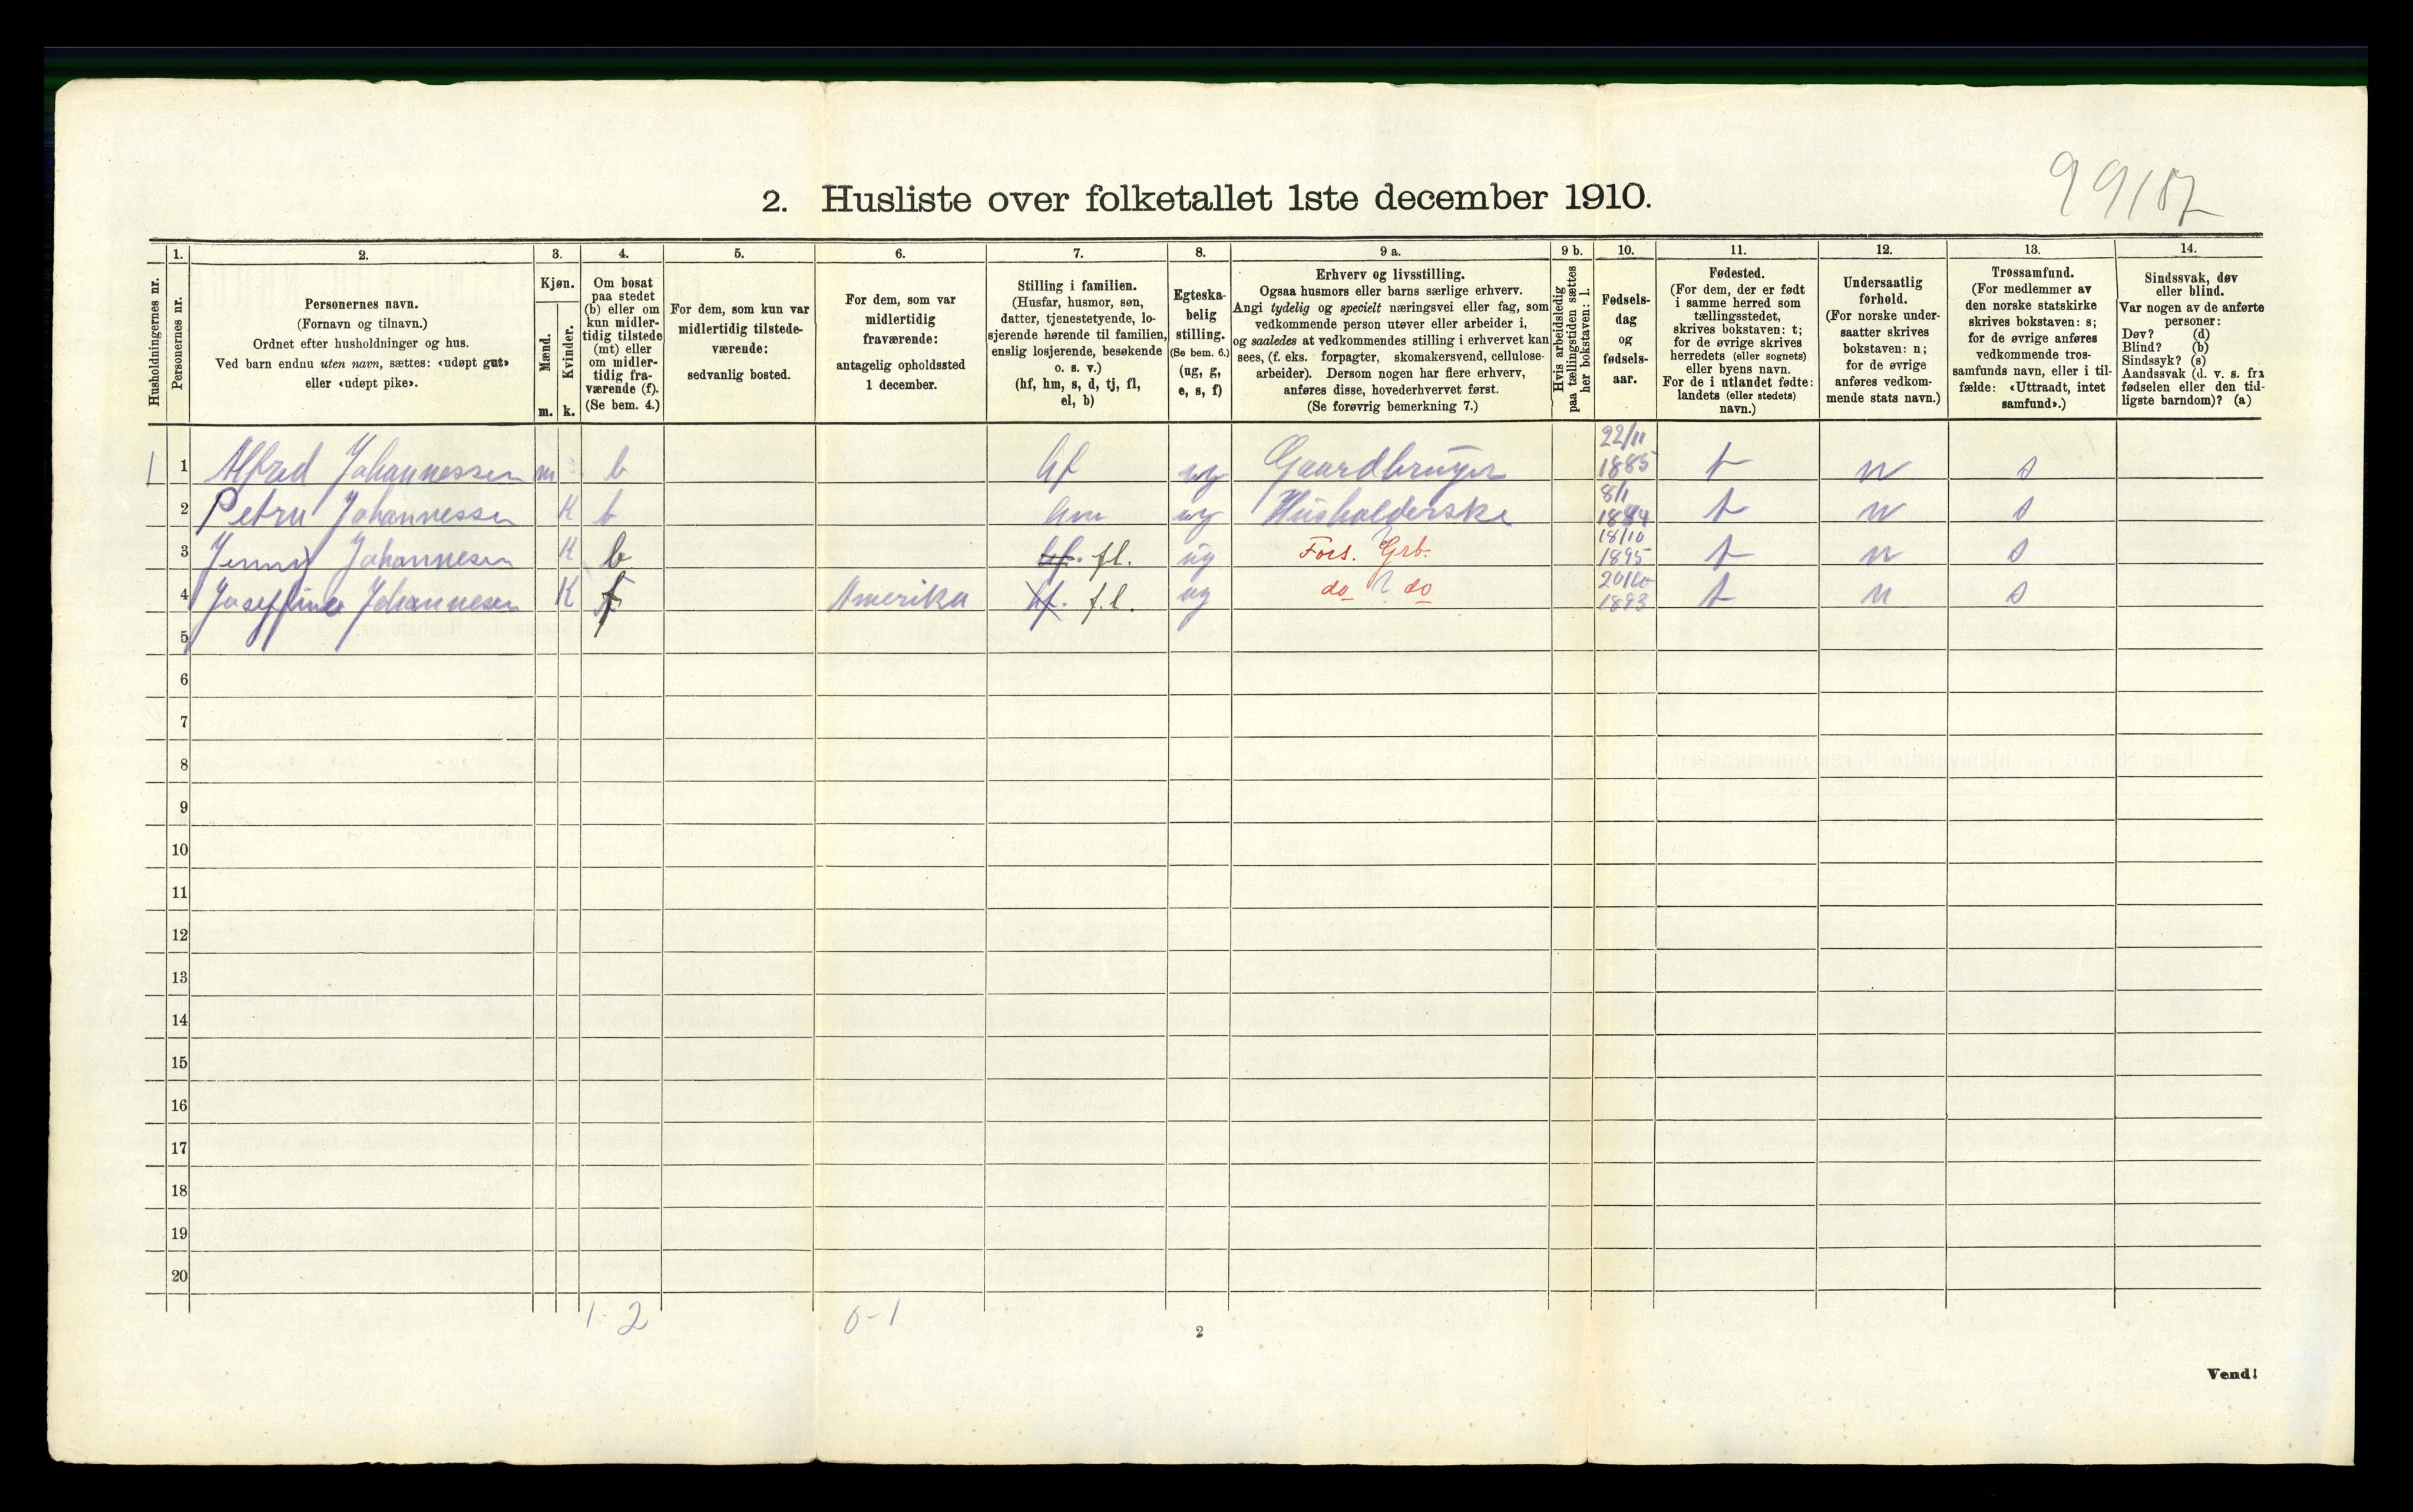 99/87
2. Husliste over folketallet 1ste december 1910.
Husholdningernes nr.
1.
Personernes nr.
2.
Personernes navn.
(Fornavn og tilnavn.)
Ordnet efter husholdninger og hus.
Ved barn endnu uten navn, sættes: «udøpt gut»
eller «udøpt pike».
3.
Kjøn.
Mænd.
m.
Kvinder.
k.
4.
Om bosat
paa stedet
(b) eller om
kun midler-
tidig tilstede
(mt) eller
om midler-
tidig fra-
værende (f).
(Se bem. 4.)
5.
For dem, som kun var
midlertidig tilstede-
værende:
sedvanlig bosted.
6.
For dem, som var
midlertidig
fraværende:
antagelig opholdssted
1 december.
7.
Stilling i familien.
(Husfar, husmor, søn,
datter, tjenestetyende, lo-
sjerende hørende til familien,
enslig losjerende, besøkende
o. s. v.)
(hf, hm, s, d, tj, fl,
el, b)
8.
Egteska-
belig
stilling.
(Se bem. 6.)
(ug, g,
e, s, f)
9 a.
Erhverv og livsstilling.
Ogsaa husmors eller barns særlige erhverv.
Angi tydelig og specielt næringsvei eller fag, som
vedkommende person utøver eller arbeider i,
og saaledes at vedkommendes stilling i erhvervet kan
sees, (f. eks. forpagter, skomakersvend, cellulose-
arbeider). Dersom nogen har flere erhverv,
anføres disse, hovederhvervet først.
(Se forøvrig bemerkning 7.)
9 b.
Hvis arbeidsledig
paa tællingstiden sættes
her bokstaven: l.
10.
Fødsels-
dag
og
fødsels-
aar.
11.
Fødested.
(For dem, der er født
i samme herred som
tællingsstedet,
skrives bokstaven: t;
for de øvrige skrives
herredets (eller sognets)
eller byens navn.
For de i utlandet fødte:
landets (eller stedets)
navn.)
12.
Undersaatlig
forhold.
(For norske under-
saatter skrives
bokstaven: n;
for de øvrige
anføres vedkom-
mende stats navn.)
13.
Trossamfund.
(For medlemmer av
den norske statskirke
skrives bokstaven: s;
for de øvrige anføres
vedkommende tros-
samfunds navn, eller i til-
fælde: «Uttraadt, intet
samfund».)
14.
Sindssvak, døv
eller blind.
Var nogen av de anførte
personer:
Døv? (d)
Blind? (b)
Sindssyk? (s)
Aandssvak (d. v. s. fra
fødselen eller den tid-
ligste barndom)? (a)
1 1 Alfred Johannessen m b hf ug Gaardbruger 22/11 1885 t n s
2 Petra Johannessen K b hm ug Husholderske 8/1 1884 t n s
3 Jenny Johannesen K b hf. fl. ug Fors. Grb. 18/10 1895 t n s
4 Joseffine Johannesen K f Amerika hf. f.l. ug do do 20/10 1893 t n s
5
6
7
8
9
10
11
12
13
14
15
16
17
18
19
20
1-2 0-1
2
Vend!